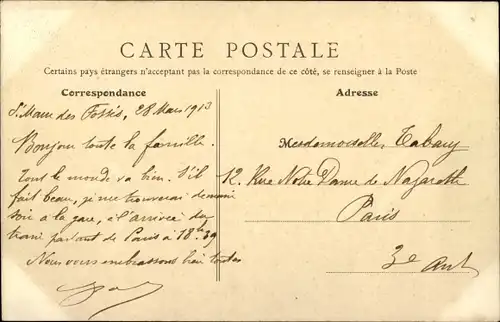 CARTE POSTALE
Certains pays étrangers n'acceptant pas la correspondance de ce côté, se renseigner à la Poste
Correspondance
Adresse
St Maur des Fossés, 28 Mars 1913
Bonjour toute la famille.
Tout le monde va bien. S'il
fait beau, je me trouverai demain
soir à la gare, à l'arrivée du
train partant de Paris à 18h 39
Nous vous embrassons bien toutes
Mesdemoiselles Tabary
12, Rue Notre Dame de Nazareth
Paris
3e Arrt